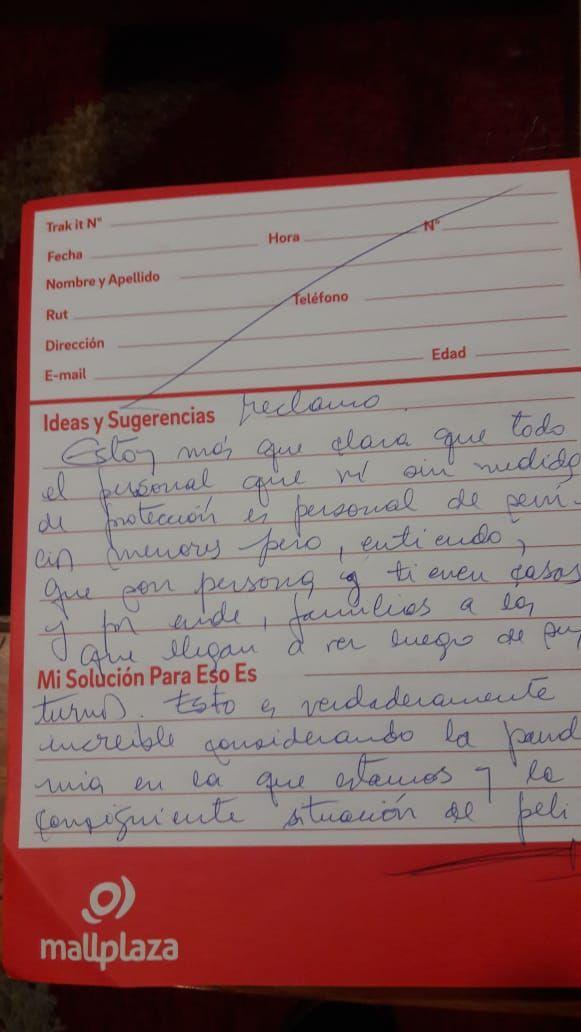 Trak it N°
Fecha Hora N°
Nombre y Apellido
Rut Teléfono
Dirección
E-mail Edad
Ideas y Sugerencias reclamo.
Estoy más que clara que todo
el personal que vi sin medida
de protección es personal de servi-
cios menores pero, entiendo,
que son persona q tienen casas
y por ende, familias a las
que llegan a ver luego de sus
Mi Solución Para Eso Es
turnos. Esto es verdaderamente
increible considerando la pand
mia en la que estamos y la
consiguiente situación de peli
mallplaza